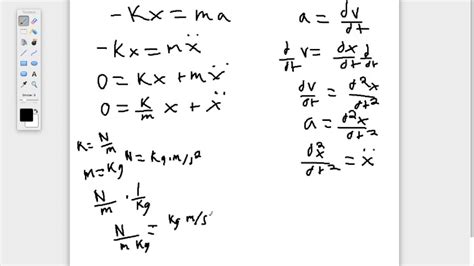 -Kx = ma
-Kx = mẍ
0 = Kx + mẍ
0 = K/m x + ẍ
K = N/m
M = Kg N = Kg·m/s²
N/m · 1/Kg
N/(m Kg) = Kg m/s
a = dv/dt
d/dt v = dx/dt d/dt
dv/dt = d²x/dt²
a = d²x/dt²
d²x/dt² = ẍ